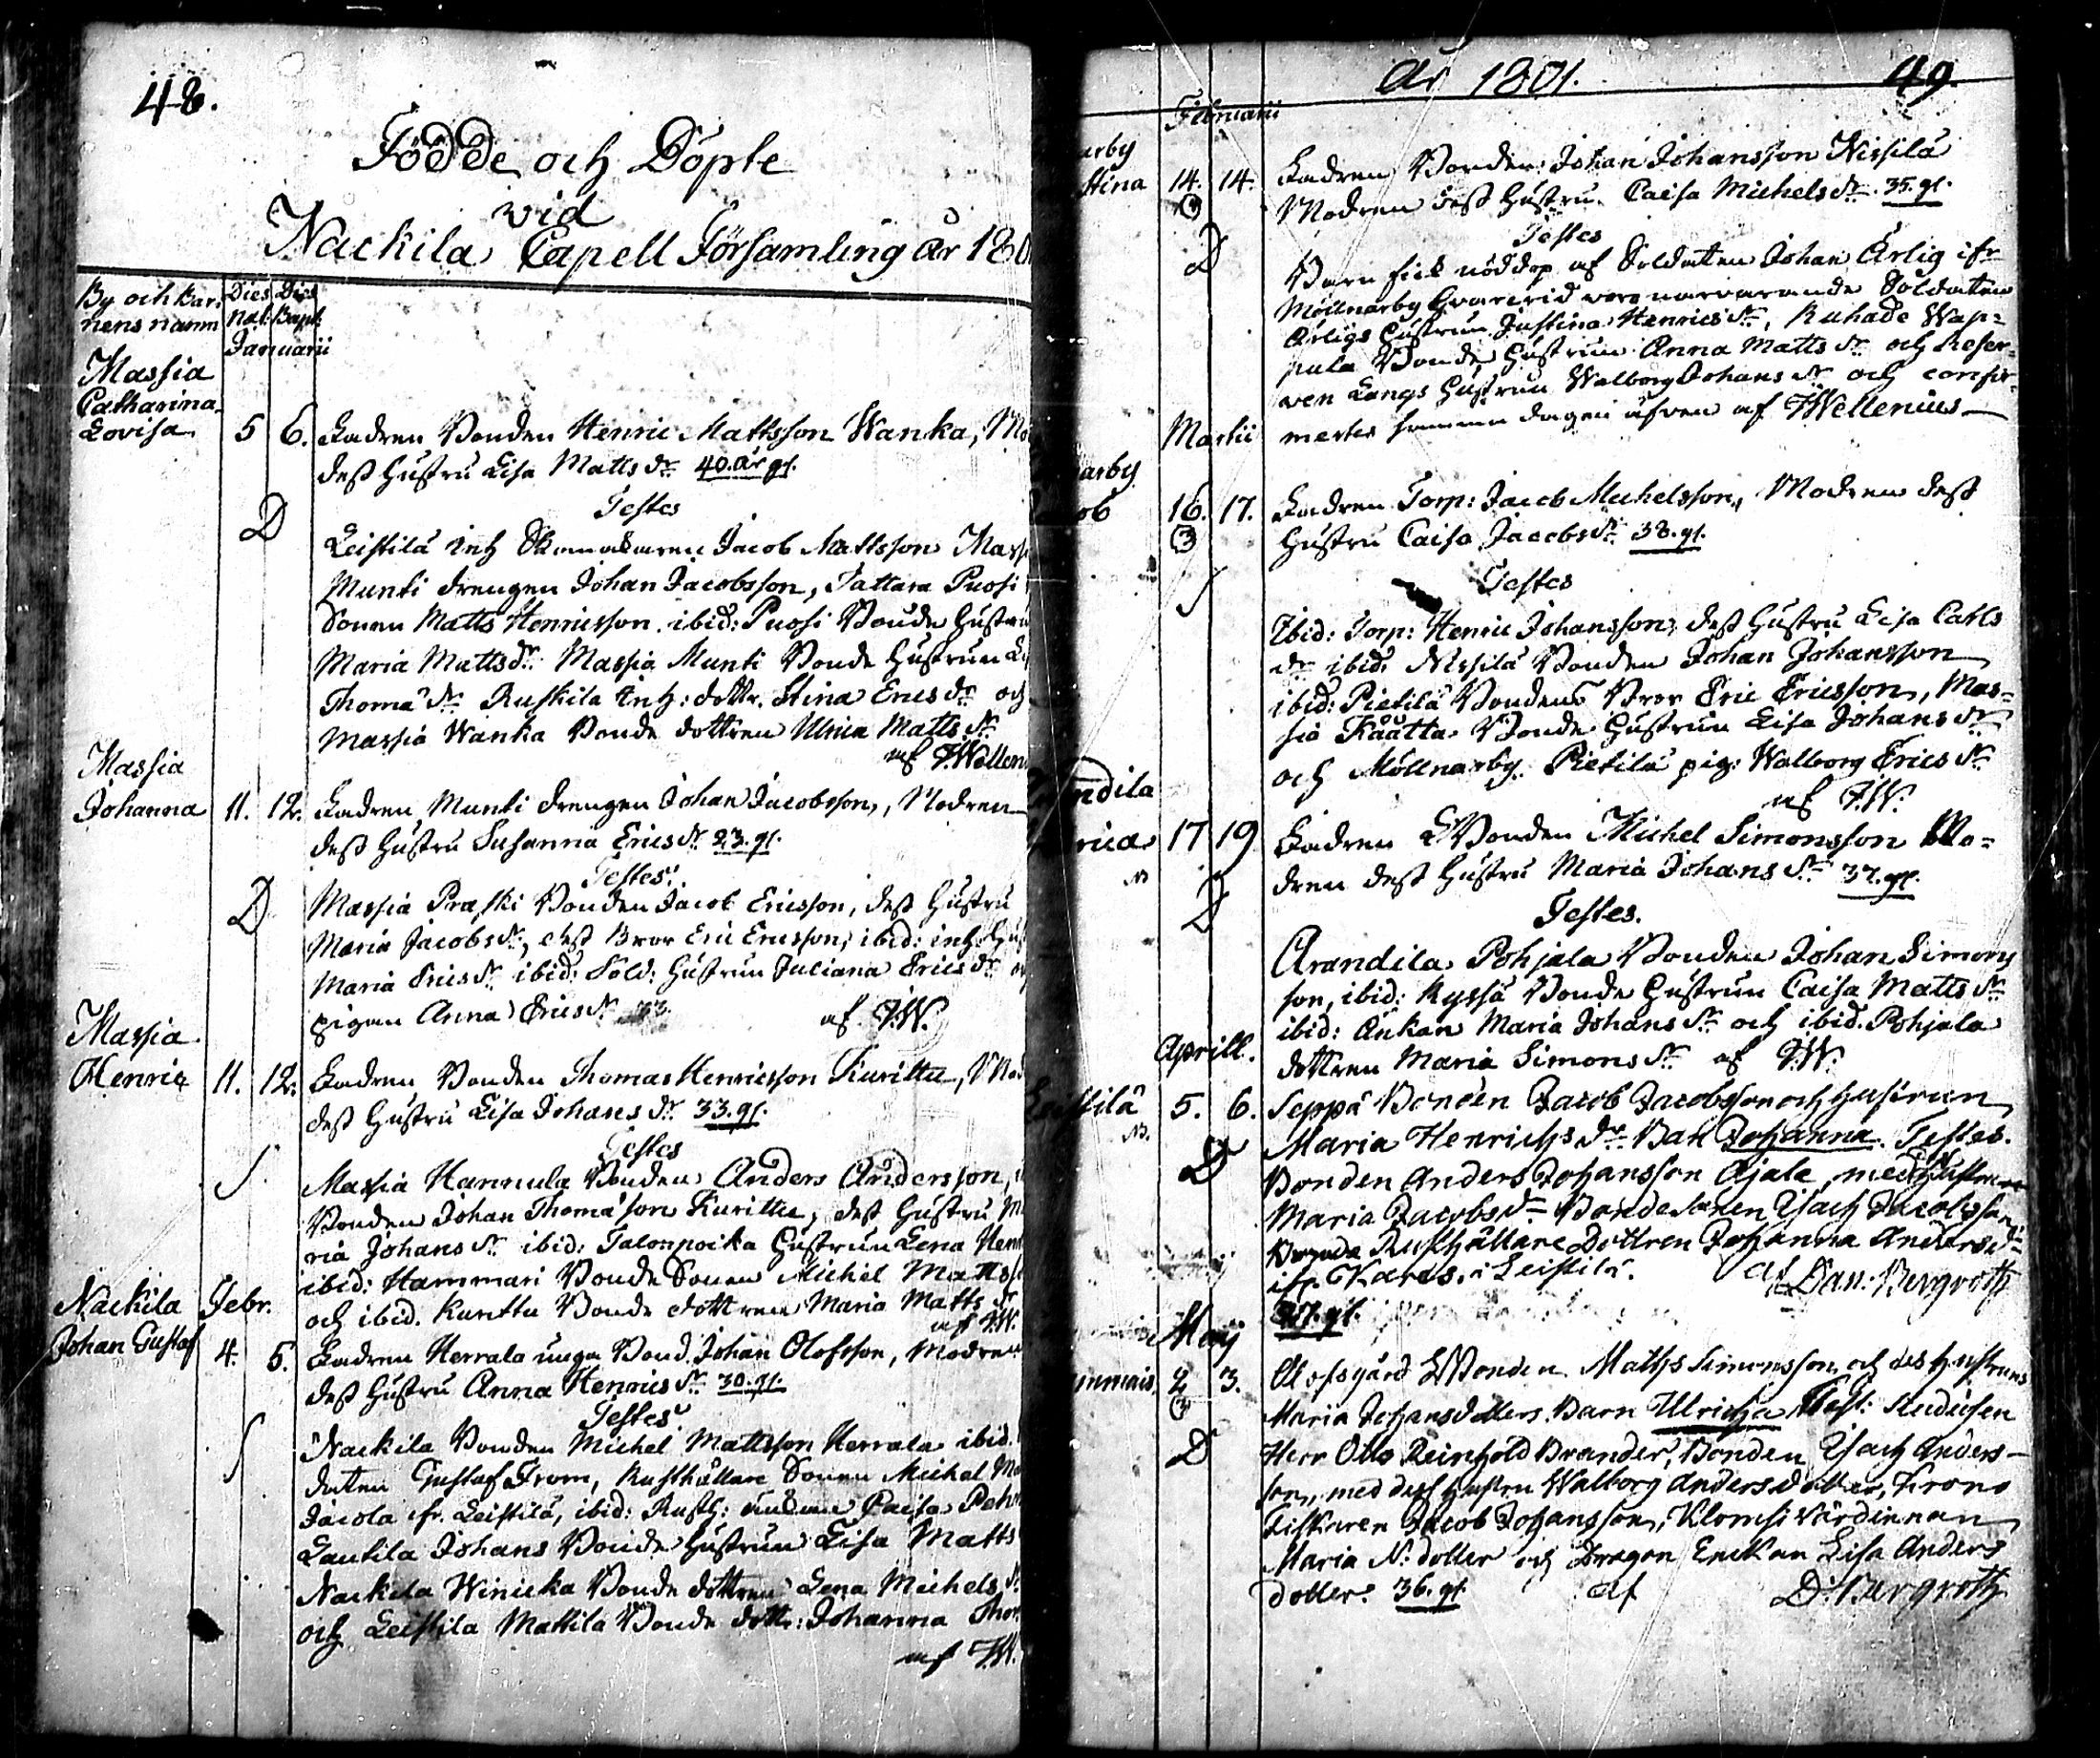 48.
Födde och Döpte
vid
Nackila Capell Församling år 180
By och bar-
nens namn
Dies Dies
Nat: Bapt:
Januarii
Massia
Catharina
Lovisa
5 6. Fadren Bonden Henric Mattsson Wanka, Mo
dess hustru Lisa Matts dr 40. år gl.
Testes
D
Leistilä inh Skomakaren Jacob Mattsson Mass
Munti drengen Johan Jacobsson, Tattara Puosi
Sonen Matts Henricsson ibid: Puosi Bonde hustrun
Maria Matts dr Massia Munti Bonde hustrun Li
Thomæ dr Ruskila inh: dottr. Stina Erics dr och
Massia Wanka Bonde dottren Ulrica Matts dr
af F.Wellen
Massia
Johanna 11. 12. Fadren Munti drengen Johan Jacobsson, Modren
dess hustru Susanna Erics dr 23. gl.
Testes
D
Massia Praski Bonden Jacob Ericsson, dess hustru
Maria Jacobs dr, dess Bror Eric Ericsson, ibid: inh: hus
Maria Erics dr ibid: Sold: hustrun Juliana Erics dr o
pigan Anna Erics dr
af F.W.
Massia
Henric 11. 12. Fadren Bonden Thomas Henricsson Kurittu, Mod
dess hustru Lisa Johans dr 33. gl.
Testes
S
Massia Hannula Bonden Anders Andersson,
Bonden Johan Thomæson Kurittu, dess hustru Ma
ria Johans dr ibid: Talonpoika hustrun Lena Hen
ibid: Hammari Bonde Sonen Michel Matts
och ibid. Kurittu Bonde dottren Maria Matts dr
af F.W.
Nackila Febr.
Johan Gustaf 4. 5. Fadren Herrala unga Bond. Johan Olofsson, Modren
dess hustru Anna Henrics dr 30. gl.
Testes
S
Nackila Bonden Michel Mattsson Herrala ibid.
daten Gustaf From, Rusthållare Sonen Michel Ma
Jacola ifr. Leistilä, ibid: Rusth: enkan Caisa
Lautila Johans Bonde hustrun Lisa Matts
Nackila Winicka Bonde dottren Lena Michels dr
och Leistila Mattila Bonde dottr: Johanna Thom
af F.W.
År 1801. 49.
Februarii
arby
Stina 14. 14. Fadren Bonden Johan Johansson Nissilä
Modren dess hustru Caisa Michels dr 35. gl.
Testes
D
Barn fick nöddop af Soldaten Johan Ärlig ifr
Möllnarby hvarvid voro närvarande Soldaten
Ärligs hustrun Justina Henrics dr, Ruhade Wap-
pula Bonde hustrun Anna Matts dr och Reser-
ven Längs hustrun Walborg Johans dr och confir-
merter samma dagen äfven af F.Wellenius
Martii
arby
ob 16. 17. Fadren Torp: Jacob Michelsson, Modren dess
3
hustru Caisa Jacobs dr 38. gl.
Testes
S
Ibid: Torp: Henric Johansson, dess hustru Lisa Carls
dr ibid: Nissilä Bonden Johan Johansson
ibid: Pietilä Bondens Bror Eric Ericsson, Mas-
sia Kåatta Bonde hustrun Lisa Johans dr
och Möllnarby Pietilä pig: Walborg Erics dr
af F.W.
ndila
rica 17 19 Fadren Bonden Michel Simonsson Mo-
dren dess hustru Maria Johans dr 37. gl.
D
Testes.
Arandila Pohjala Bonden Johan Simons
son, ibid: Ryssä Bonde hustrun Caisa Matts dr
ibid: Änkan Maria Johans dr och ibid. Pohjala
dottren Maria Simons dr af F.W.
Aprill.
Leistilä 5. 6. Seppä Bonden Jacob Jacobsson och hustrun
Maria Henrichs dr Barn Johanna. Testes.
D
Bonden Anders Johansson Äjale, med hustrun
Maria Jacobs dr Bonde sonen Isach Jacobsson
Rusthållare Dottren Johanna Anders dr
ifr Kares i Leistilä. af Dan: Bergroth
gl.
Maij
2 3. Olofsgård Bonden Matths Simonsson och des hustrus
Maria Johansdotters Barn Ulricha Test: Studiosen
D
Herr Otto Reinhold Brander, Bonden Isach Anders-
son, med dess hustru Walborg Andersdotter, Krono
Fiskaren Jacob Johansson, Klomsi Värdinnan
Maria N: dotter och Dragon Enckan Lisa Anders
dotter. 36. gl. af D. Bergroth